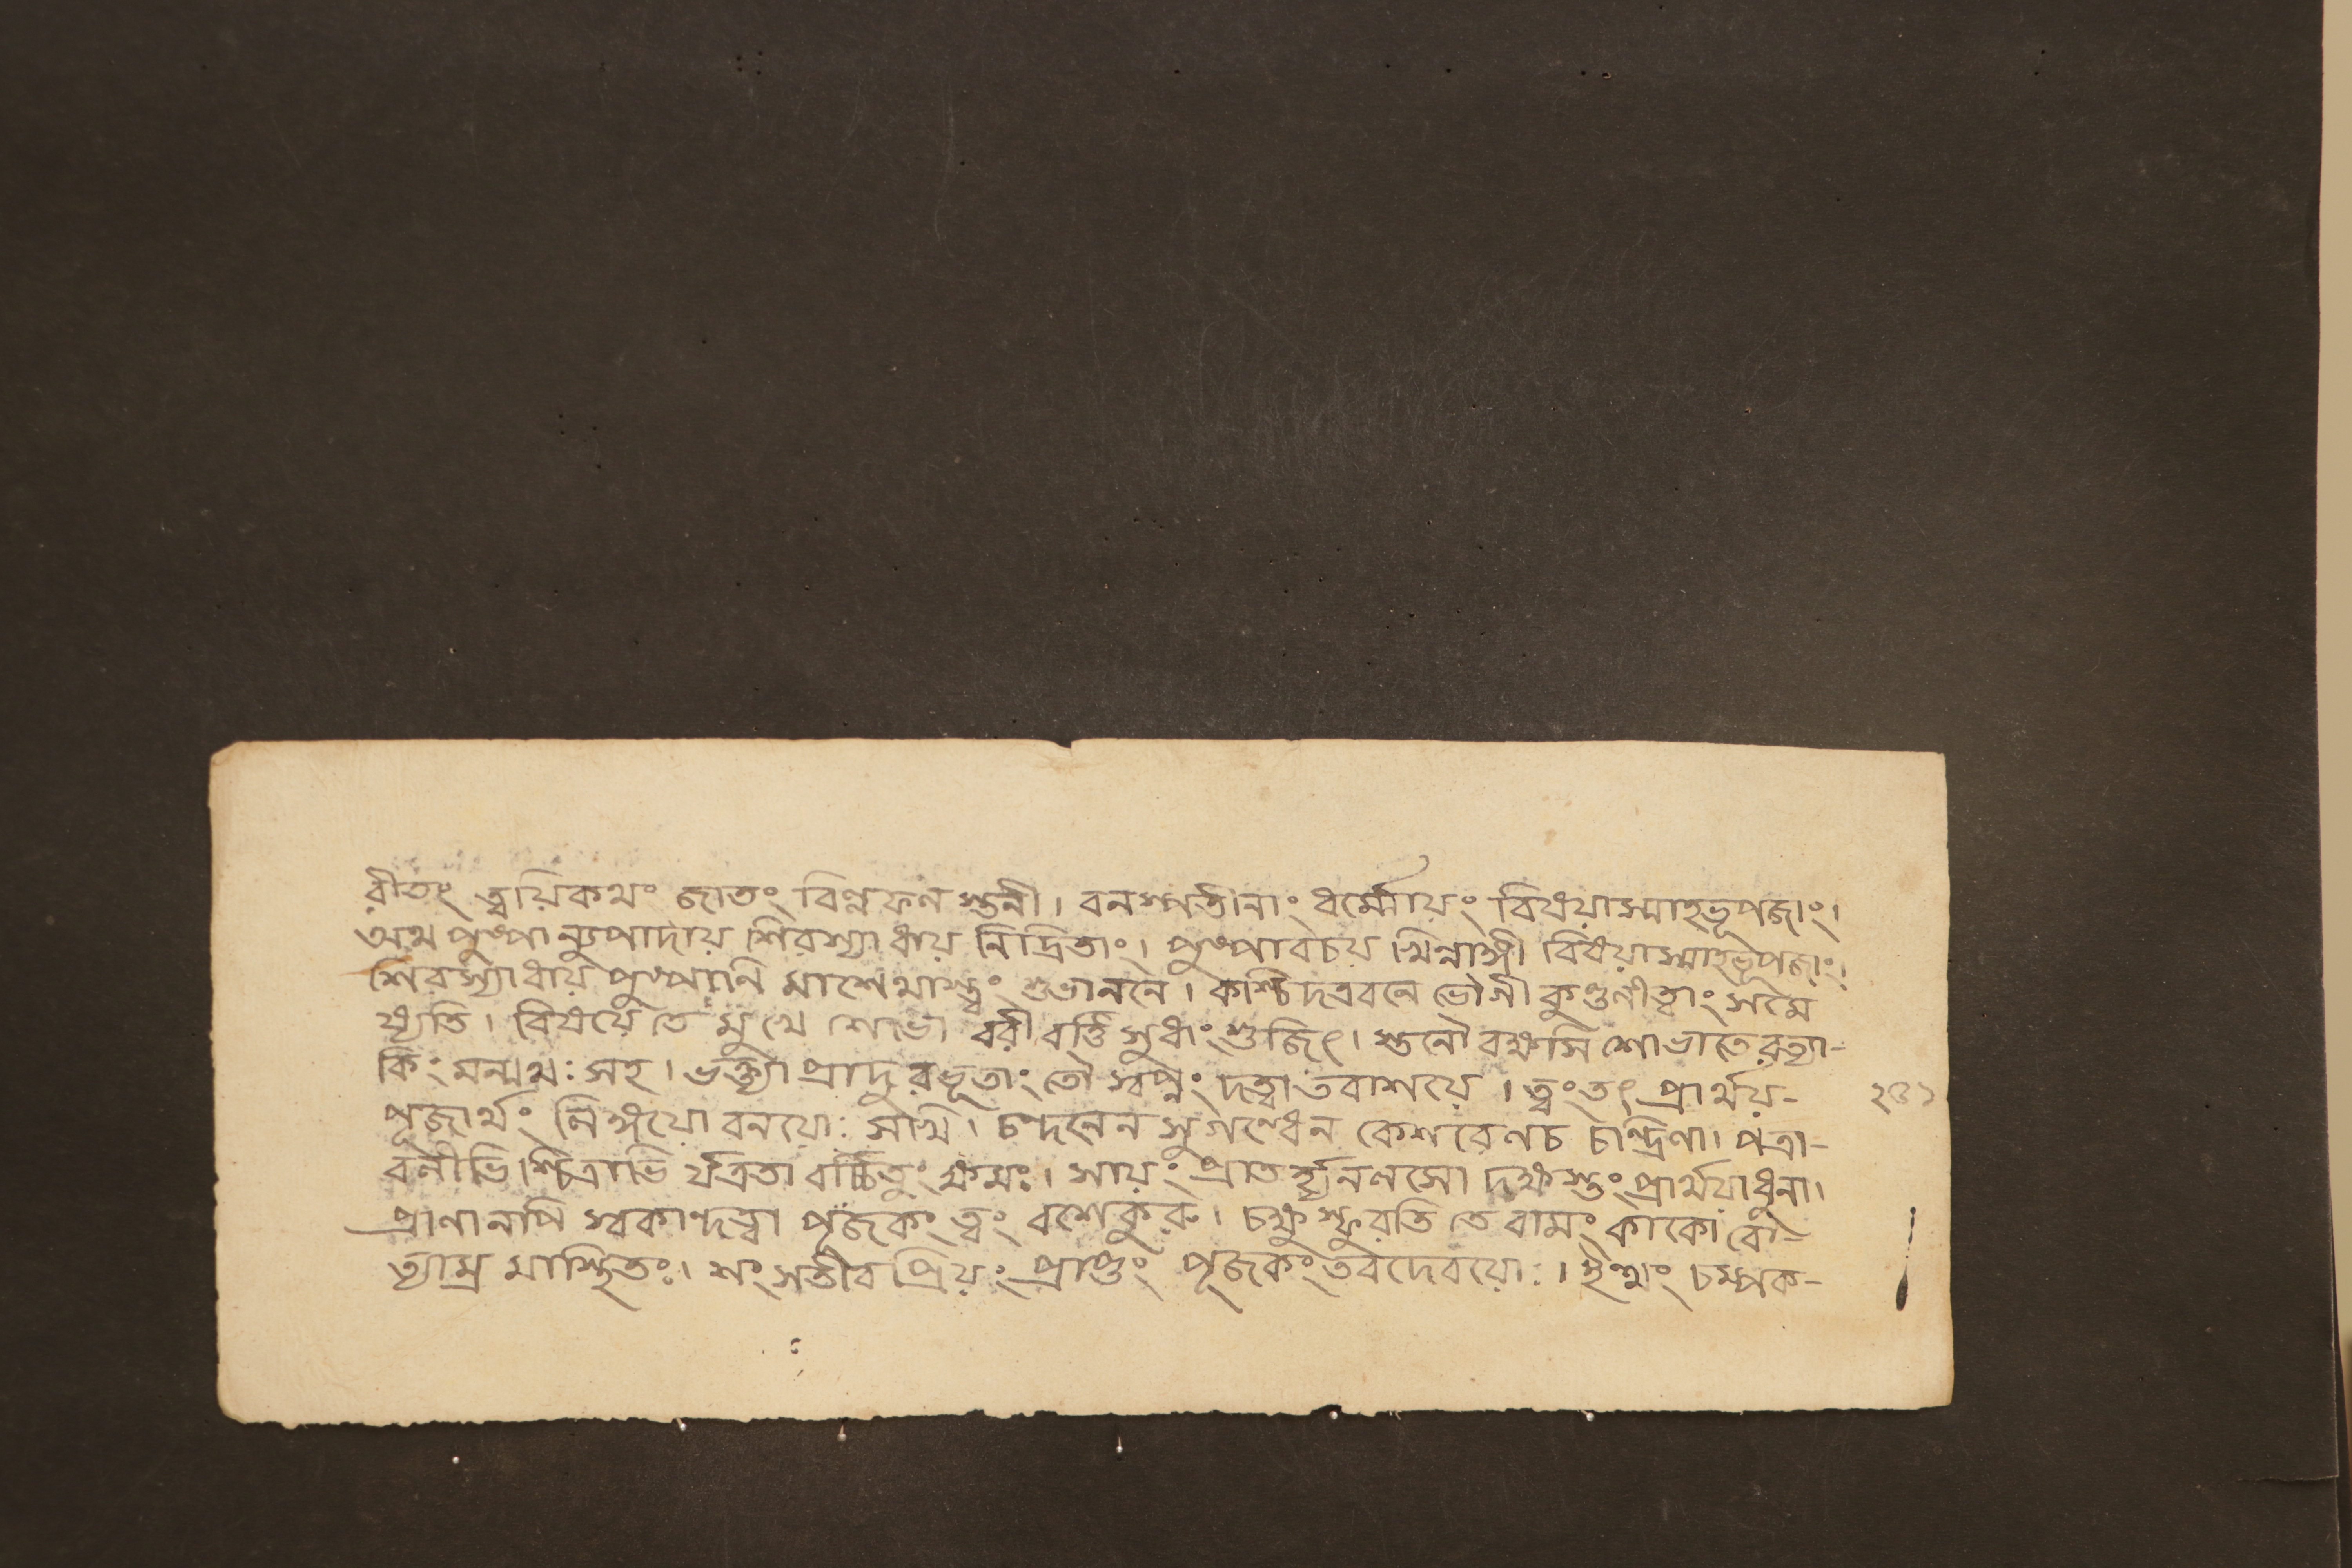 রীতং ত্বয়িকথং জাতং বিণ্নফলস্তনী। বনস্পতীনাং ধর্ম্মোয়ং বিষয়াস্মাহভূপজাং।
অথ পুষ্পান্যুপাদায় শিরস্যাধায় নিদ্রিতাং। পুষ্পাবচয় খিন্নাঙ্গী বিষয়াস্মাহভূপজাং।
শিরস্যাধায় পুষ্পানি মাশেথাস্ত্বং শুভাননে। কশ্চিদত্রবনে ভোগী কুণ্ডলীত্বাং সমে
ষ্যতি। বিষয়ে তে মুখে শোভা বরীবর্ত্তি সুধাংশুজিৎ। স্তনৌ বক্ষসি শোভাতে রত্যা-
কিং মন্মথঃ সহ। ভক্ত্যা প্রাদুরভূতাং তৌ স্বপ্নং দত্বা তবাশয়ে। ত্বং তৎ প্রার্থয়-
পূজার্থং লিঙ্গয়োবনয়োঃ সখি। চন্দনেন সুগন্ধেন কেশরেণচ চন্দ্রিণা। পত্রা-
বলীভিশ্চিত্রাভি র্যত্রতাবর্চ্চিতুং ক্ষমঃ। সায়ং প্রাত র্হ্যনলসো দক্ষস্তং প্রার্থয়াধুনা।
প্রাণানপি স্বকান্দত্বা পূজকং ত্বং বশেকুরু। চক্ষুস্ফুরতি তে বামং কাকো রৌ-
ত্যাম্র মাস্থিতঃ। শংসতীব প্রিয়ং প্রাপ্তং পূজকং তবদেবয়োঃ। ইত্থং চম্পক-
২৩১